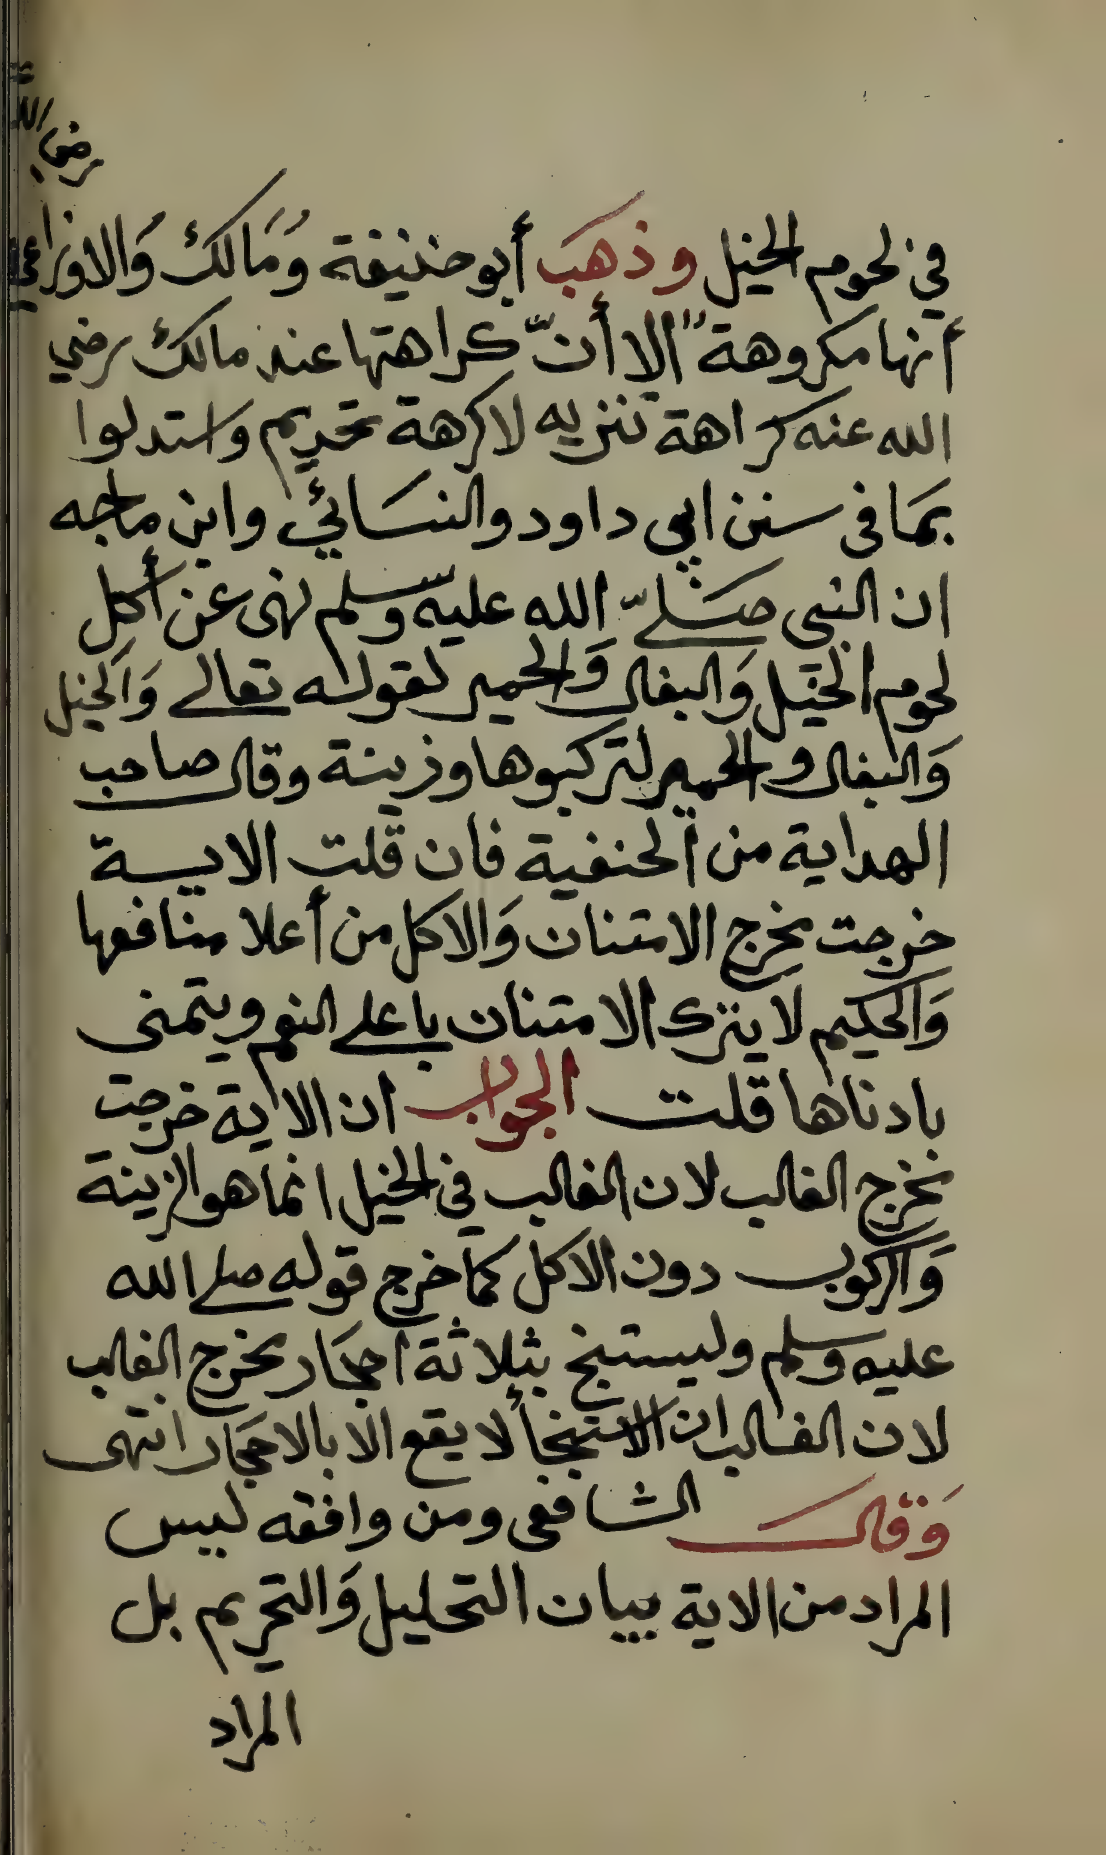 رضي الله
في لحوم الخيل وذهب أبو حنيفة وَمَالك وَالاوزاعي
أنها مكروهة الا أنّ كراهتها عند مالك رضي
الله عنه كراهة تنزيه لا كرهة تحريم واستدلوا
بمَا فى سنن ابي داود والنسَائي وابن ماجه
ان النبى صَلىّ الله عليه وسلم نهى عن أكل
لحوم الخيل وَالبغال وَالحمير لقوله تعالى وَالخيل
وَالبغال والحمير لتركبوها وزينة وقال صاحب
الهداية من الحنفية فان قلت الاية
خرجت مخرج الامتنان وَالاكل من أعلا منافعها
وَالحكيم لا يترك الامتنان باعلى النعم ويتمنى
بادناها قلت الجواب ان الاية خرجت
مخرج الغالب لان الغالب في الخيل انما هو الزينة
وَالركوب دون الاكل كما خرج قوله صلى الله
عليه وسلم وليستنج بثلاثة احجَار مخرج الغالب
لان الغالب ان الاستنجأ لا يقع الا بالاحجَار انتهى
وَقال الشافعى ومن وافقه ليس
المراد من الاية بيان التحليل وَالتحريم بل
المراد